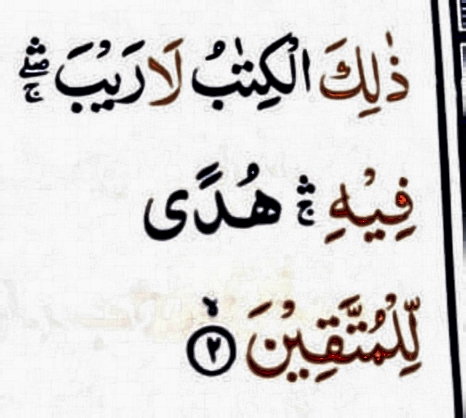 ذٰلِكَ الْكِتٰبُ لَا رَيْبَ ۛۖۚ
فِيْهِ ۛۚ هُدًى
لِّلْمُتَّقِيْنَ ۙ ﴿٢﴾